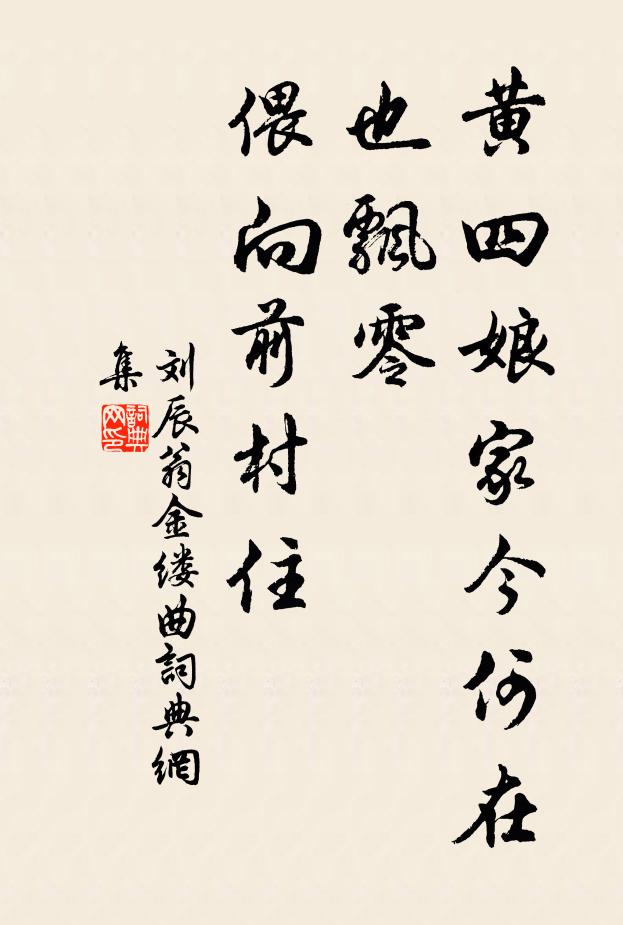 黄四娘家今何在
也飄零
偎向前村住
刘辰翁金缕曲詞典網
集
詞典网印